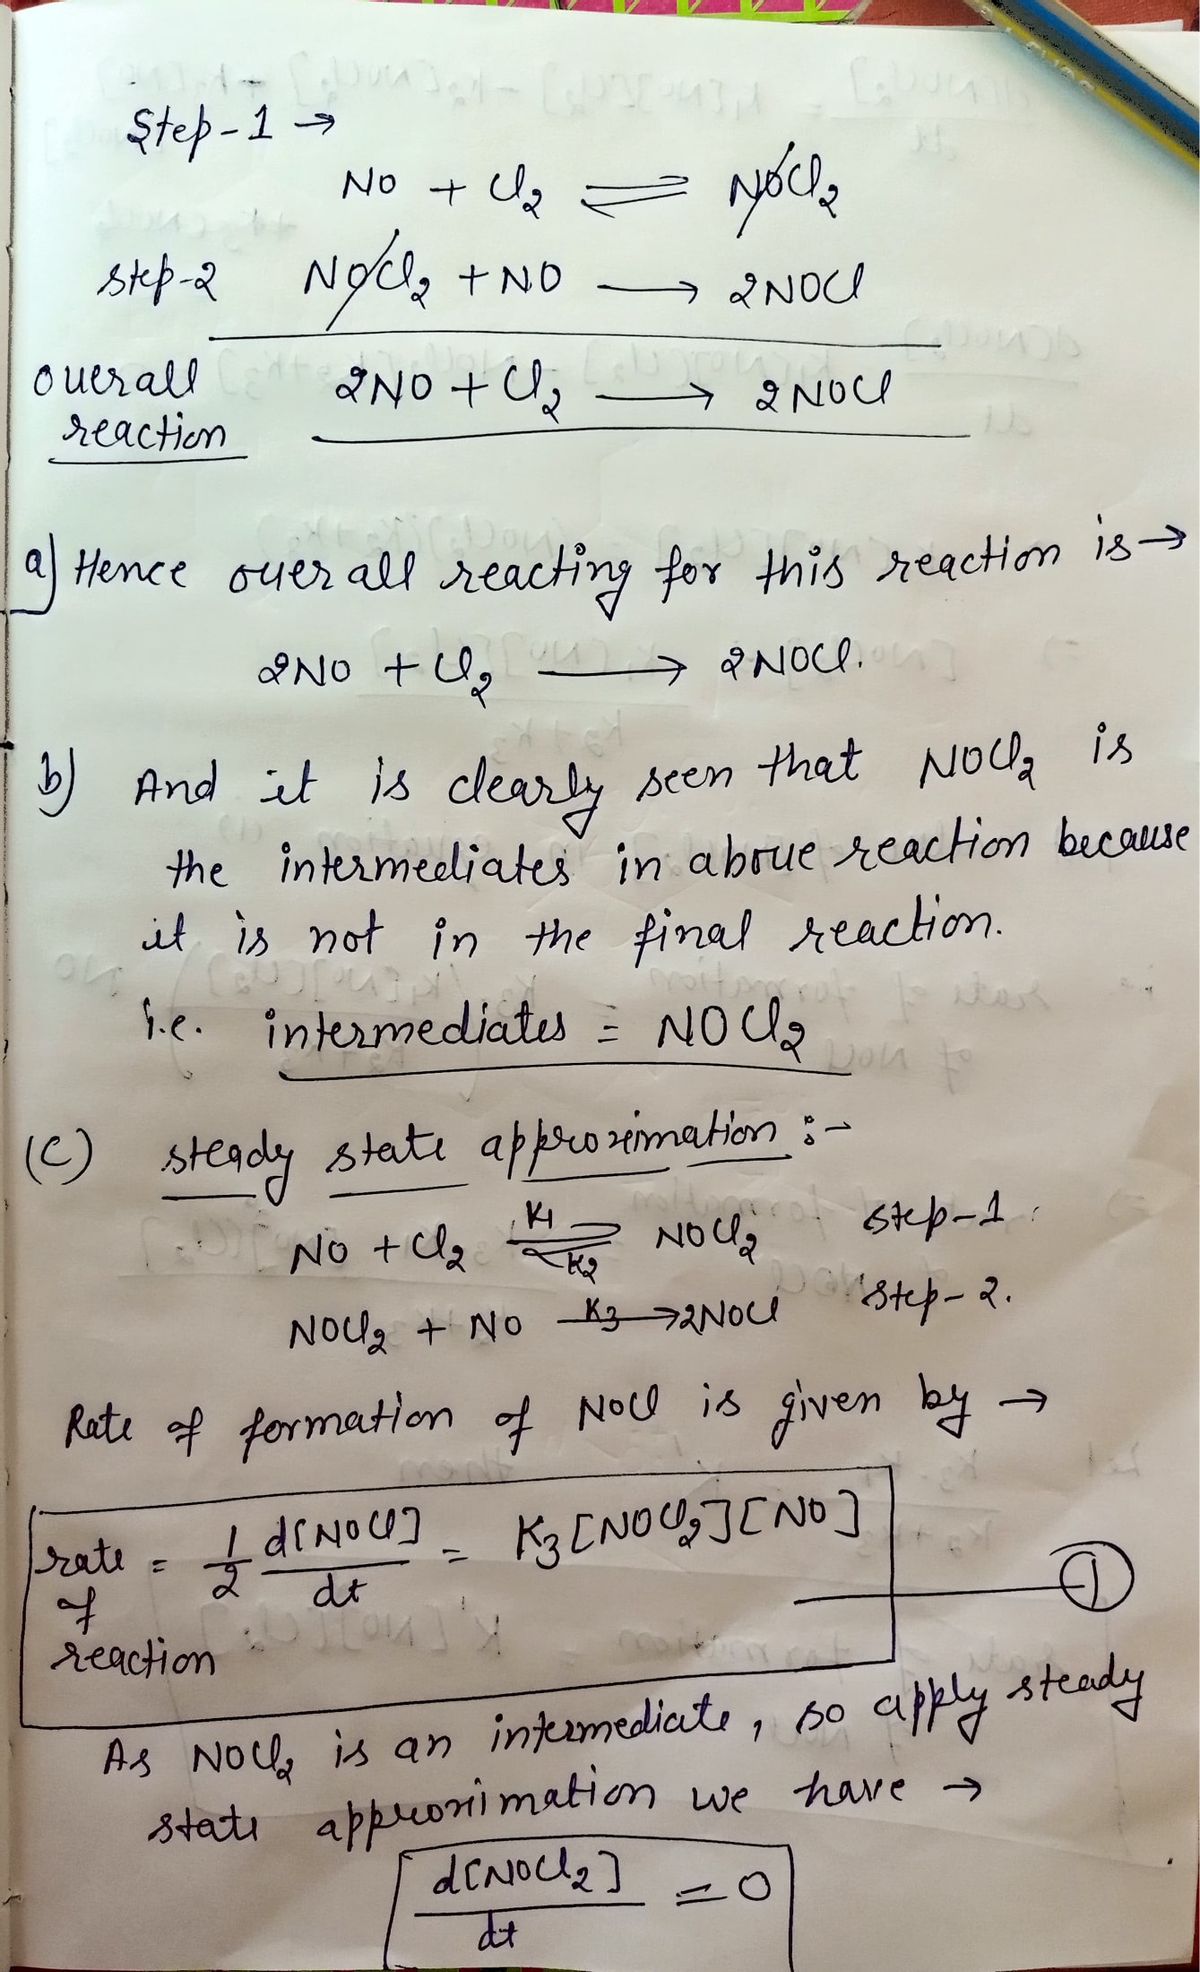 Step-1 →
NO + Cl2 ⇌ NOCl2
step-2 NOCl2 + NO ⟶ 2NOCl
overall reaction 2NO + Cl2 ⟶ 2NOCl
a) Hence overall reacting for this reaction is →
2NO + Cl2 ⟶ 2NOCl.
b) And it is clearly seen that NOCl2 is
the intermediates in above reaction because
it is not in the final reaction.
i.e. intermediates = NOCl2
(C) steady state approximation :-
NO + Cl2 ⇌ NOCl2 step-1
K1
K2
NOCl2 + NO —K3→ 2NOCl step-2.
Rate of formation of NOCl is given by →
rate of reaction = 1/2 d[NOCl]/dt = K3[NOCl2][NO] — ①
As NOCl2 is an intermediate, so apply steady
state approximation we have →
d[NOCl2]/dt = 0